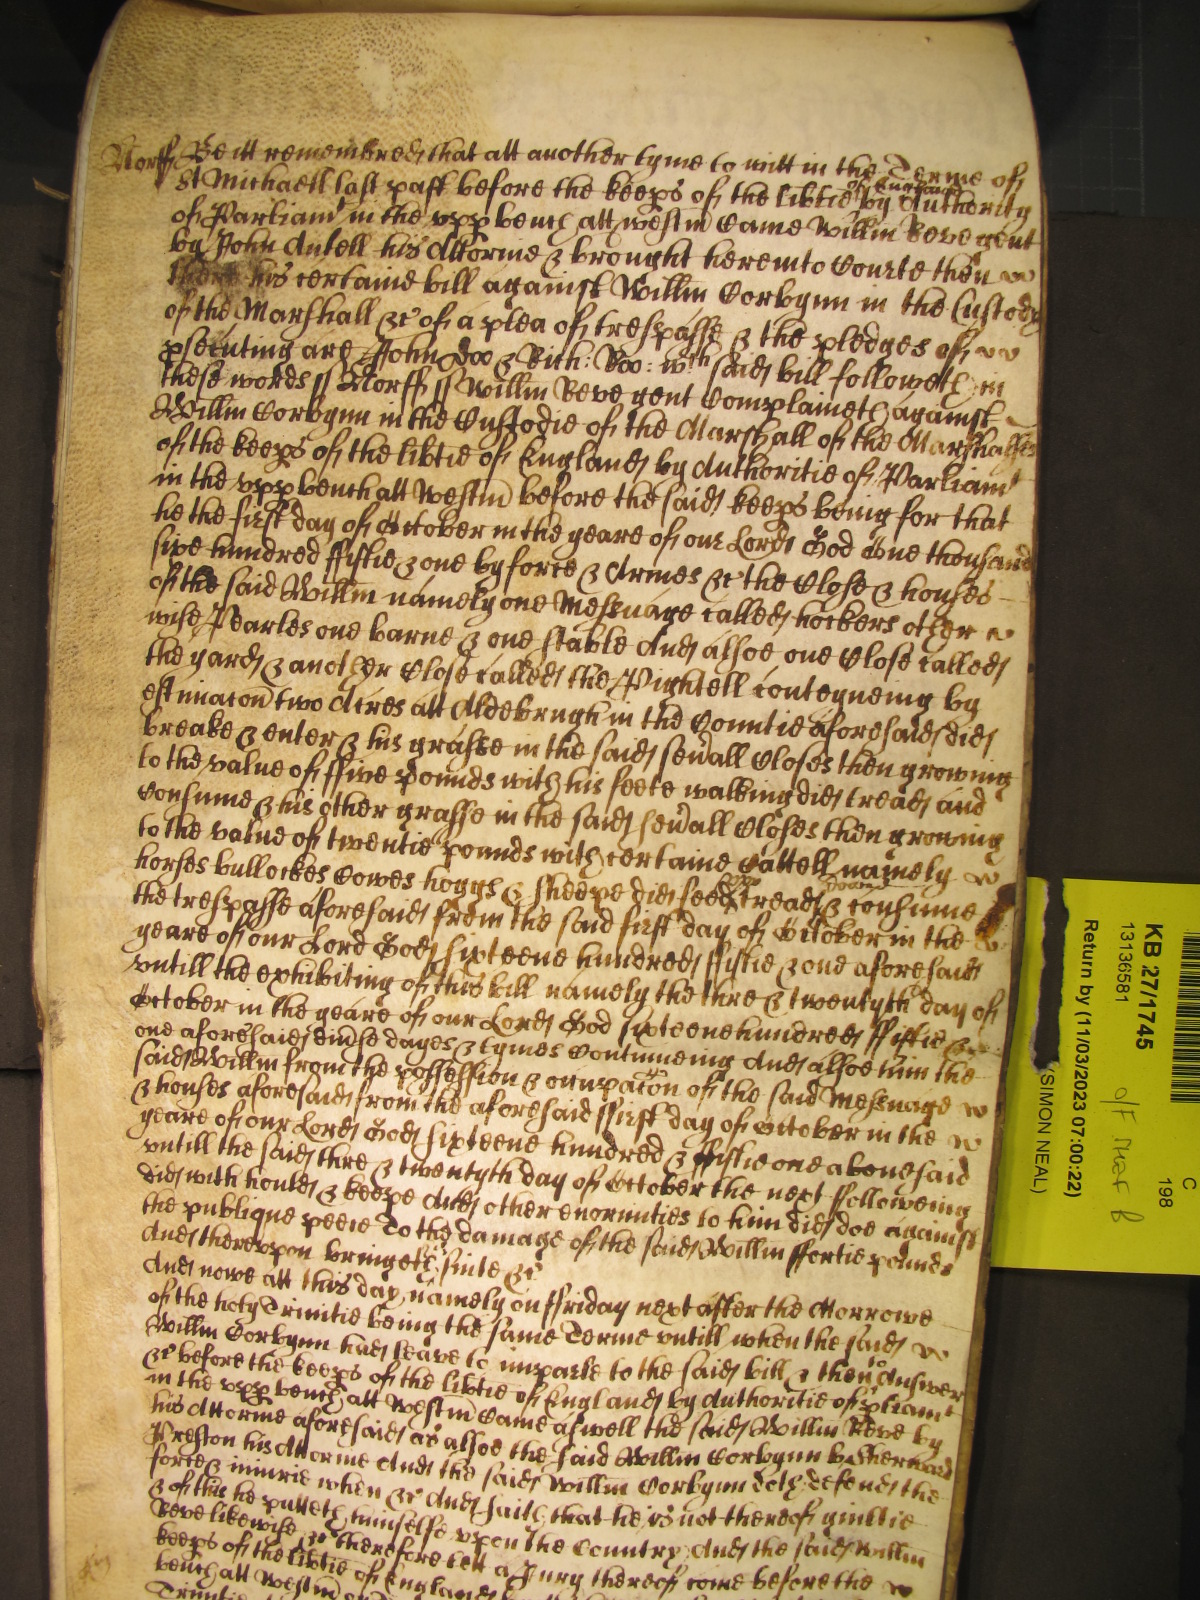 Norff Be itt remembred that att another tyme to witt in the Terme of
St Michaell last past before the keeps of the libtie of England by Authority
of Parliamt in the upp bench att westm Came Willm Reve gent
by John Antell his Attornie & brought here into Courte then
there his certaine bill against Willm Corbynn in the Custody
of the Marshall &c of a plea of trespasse & the pledges of
psecuting are John Doo & Rich: Roo: wch said bill followeth in
these words ss Norff ss Willm Reve gent Complaineth against
Willm Corbynn in the Custodie of the Marshall of the Marshalsie
of the keeps of the libtie of England by Authoritie of Parliamt
in the upp bench att westm before the said keeps being for that
he the first day of October in the yeare of our Lord God One thousand
sixe hundred fiftie & one by force & Armes &c the Close & houses
of the said Willm namely one Messuage called hockers other
wise Pearles one barne & one stable And alsoe one Close called
the yard & another Close called the Pightell conteyneing by
estimacon two Acres att Aldebrugh in the Countie aforesaid did
breake & enter & his grasse in the said sevall Closes then growing
to the value of ffive pounds with his feete walking did tread and
consume & his other grasse in the said sevall Closes then growing
to the value of twentie pounds with certaine Cattell namely
horses bullockes Cowes hoggs & sheepe did feed tread downe & consume
the trespasse aforesaid from the said first day of October in the
yeare of our Lord God sixteene hundred fiftie & one aforesaid
untill the exhibiting of this bill namely the thre & twentyth day of
October in the yeare of our Lord God sixteene hundred ffiftie &
one aforesaid divse dayes & tymes Continueing And alsoe him the
said Willm from the possession & occupacon of the said Messuage
& houses aforesaid from the aforesaid ffirst day of October in the
yeare of our Lord God sixteene hundred & ffiftie one abovesaid
untill the said thre & twentyth day of October the next ffolloweing
did with hould & keepe And other enormities to him did doe against
the publique peece To the damage of the said Willm ffortie pounds
And thereupon bringeth suite &c
And nowe att this day namely on ffriday next after the Morrowe
of the holy Trinitie being the same Terme untill when the said
Willm Corbynn had leave to imparle to the said bill & then to Answer
&c before the keeps of the libtie of England by Authoritie of pliamt
in the upp bench att westm Came aswell the said Willm Reve by
his Attornie aforesaid as alsoe the said Willm Corbynn by
Preston his Attornie And the said Willm Corbynn doth defend the
force & iniurie when &c And saith that he is not thereof guiltie
& of this he putteth himselfe upon the Country And the said Willm
Reve likewise &c therefore lett a Jury thereof come before the
keeps of the libtie of England
bench att westm
KB 27/1745
13136581
Return by (11/03/2023 07:00:22)
(SIMON NEAL)
C
198